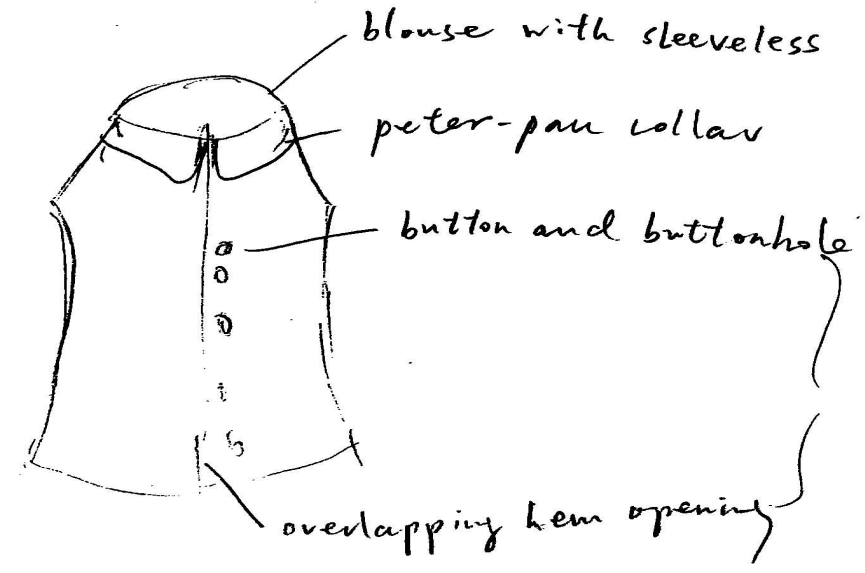 blouse with sleeveless
peter-pan collar
button and buttonhole
overlapping hem opening